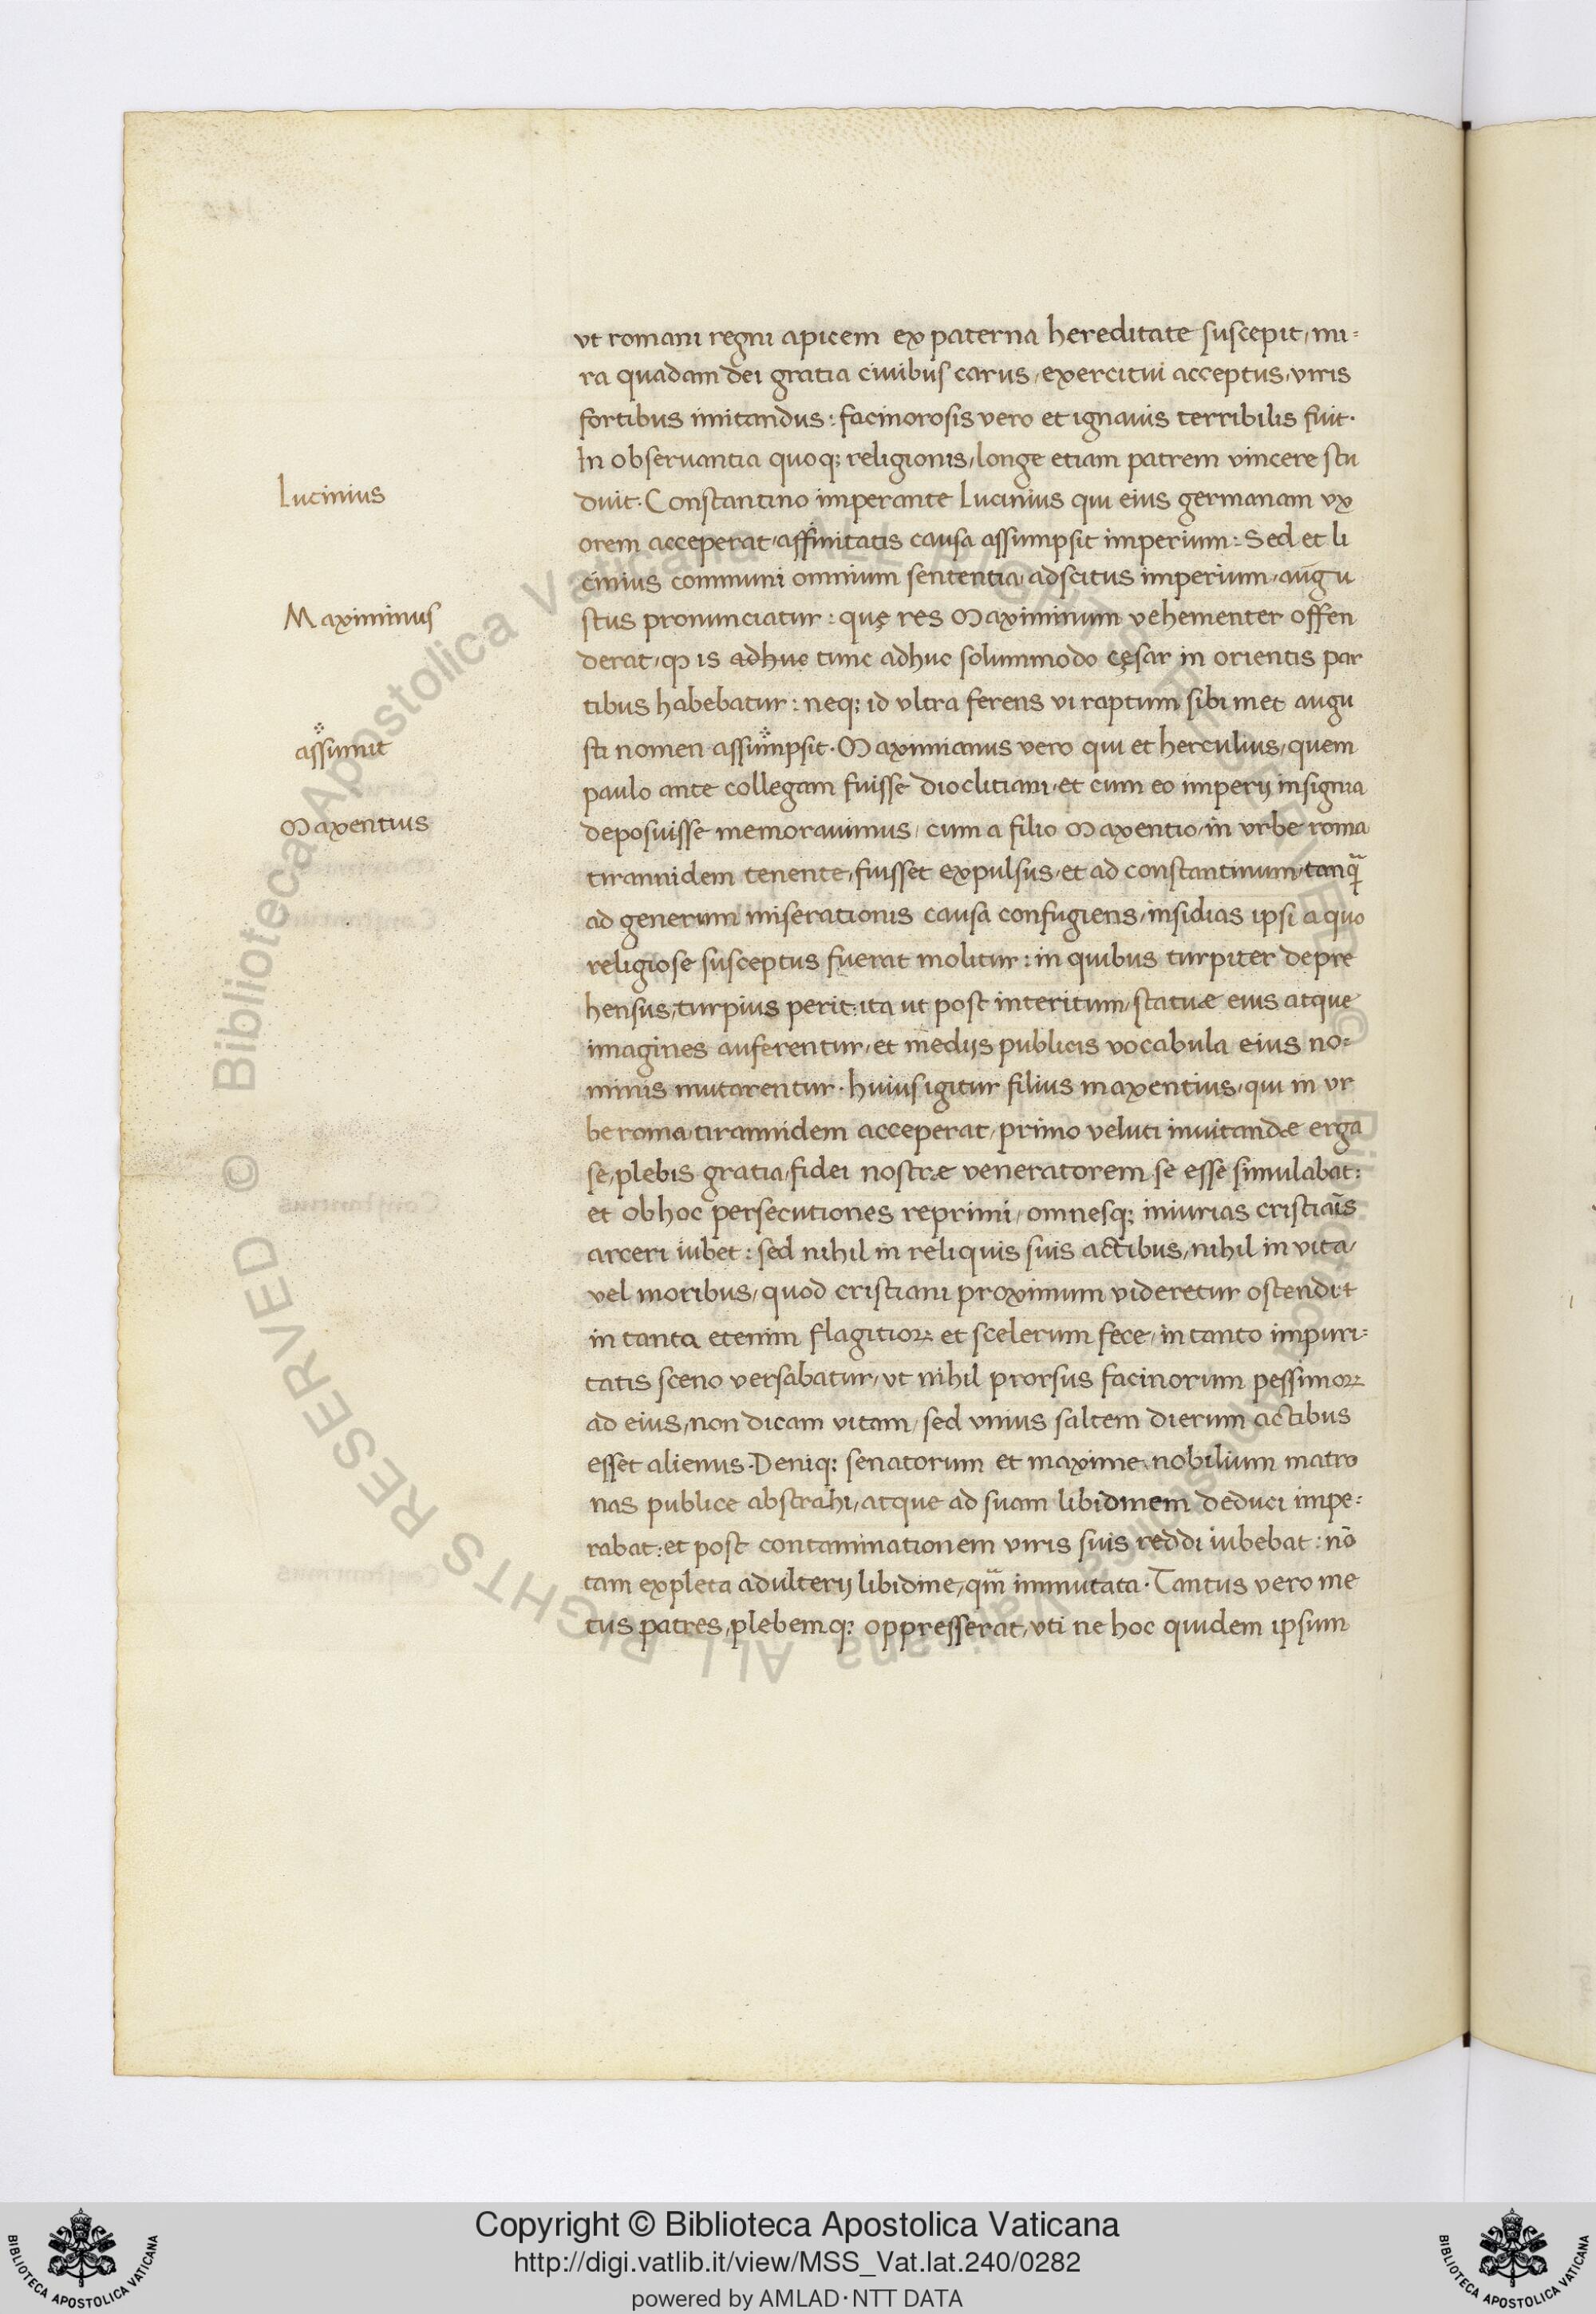 vt romani regni apicem ex paterna hereditate suscepit, mi=
ra quadam dei gratia ciuibus carus, exercitui acceptus, viris
fortibus imitandus: facinorosis vero et ignauis terribilis fuit.
In obseruantia quoq; religionis, longe etiam patrem vincere stu
Lucinius
duit. Constantino imperante Lucinius qui eius germanam vx
orem acceperat, affinitatis causa assumpsit imperium: Sed et li
cinius communi omnium sententia, adscitus imperium, augu
Maximinus
stus pronunciatur: quę res Maximinum vehementer offen
derat, ꝙ is adhuc tunc adhuc solummodo cęsar in orientis par
tibus habebatur: neq; id vltra ferens vi raptum sibi met augu
assumit
sti nomen assumpsit. Maximianus vero qui et herculius, quem
paulo ante collegam fuisse dioclitiani, et cum eo imperij insignia
Maxentius
deposuisse memorauimus, cum a filio Maxentio, in vrbe roma
tirannidem tenente, fuisset expulsus, et ad constantinum, tanq̃
ad generum miserationis causa confugiens, insidias ipsi a quo
religiose susceptus fuerat molitur: in quibus turpiter depre
hensus, turpius perit: ita ut post interitum, statuæ eius atque
imagines auferentur, et medijs publicis vocabula eius no=
minis mutarentur. huius igitur filius maxentius, qui in vr
be roma tirannidem acceperat, primo veluti inuitandæ erga
se, plebis gratia, fidei nostræ veneratorem se esse simulabat:
et ob hoc persecutiones reprimi, omnesq; iniurias cristiaĩs
arceri iubet: sed nihil in reliquis suis actibus, nihil in vita,
vel moribus, quod cristiani proximum videretur ostendit
in tanta etenim flagitioꝝ et scelerum fece, in tanto impuri=
tatis sceno versabatur, vt nihil prorsus facinorum pessimoꝝ
ad eius, non dicam vitam, sed vnius saltem dierum actibus
esset alienus. Deniq; senatorum et maxime nobilium matro
nas publice abstrahi, atque ad suam libidinem deduci impe=
rabat: et post contaminationem viris suis reddi iubebat: nõ
tam expleta adulterij libidine, qm̃ immutata. Tantus vero me
tus patres, plebemq; oppresserat, vti ne hoc quidem ipsum
Copyright © Biblioteca Apostolica Vaticana
http://digi.vatlib.it/view/MSS_Vat.lat.240/0282
powered by AMLAD·NTT DATA